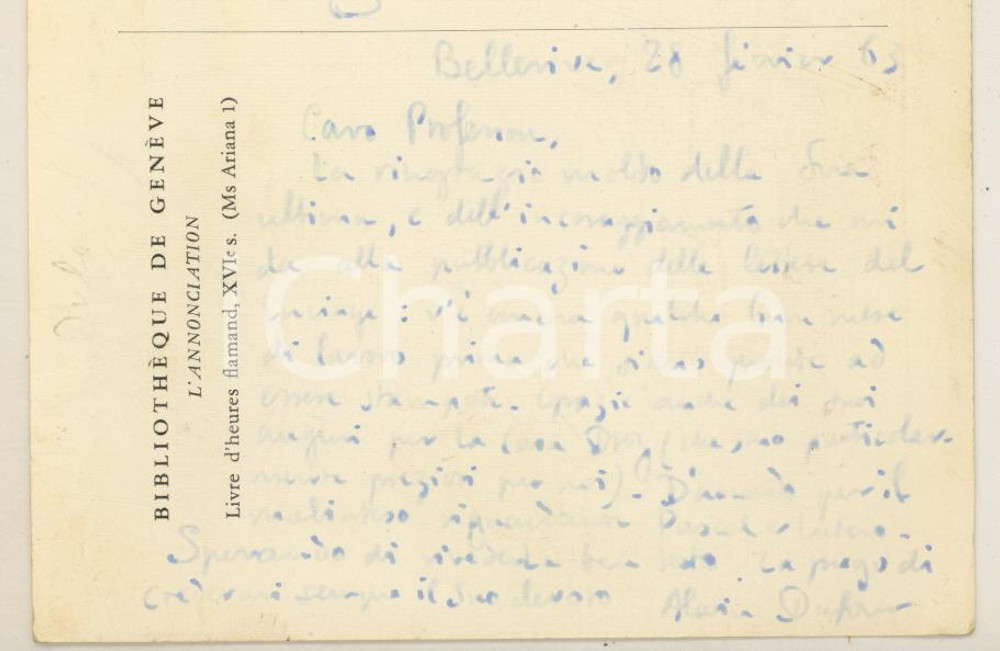 BIBLIOTHÈQUE DE GENÈVE
L'ANNONCIATION
Livre d'heures flamand, XVIe s. (Ms Ariana 1)
Bellerive, 28 février 63
Caro Professore,
La ringrazio molto della Sua
ultima, e dell'incoraggiamento che mi
da alla pubblicazione delle lettere del
: v'è ancora qualche buon mese
di lavoro prima che siano pronte ad
essere stampate. Grazie anche dei suoi
auguri per la (che sono particolar-
mente preziosi per noi). per il
malinteso riguardante Pascal e Lutero.
Sperando di rivederla ben La prego di
credermi sempre il Suo devoto Alain Dufour
Charta